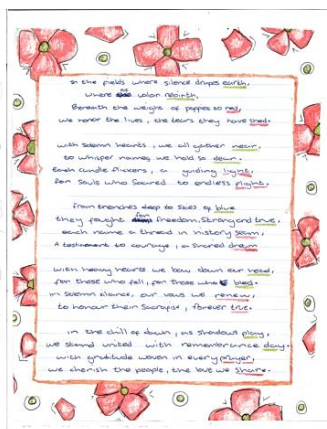 in the fields where silence drapes earth,
where valor rebirth,
Beneath the weight of poppes so red,
we honor the lives, the tears they have shed.
with solemn hearts, we all gather near,
to whisper names, we hold so dear.
Each candle flickers, a guiding light,
for souls who soared to endless flight.
from trenches deep to skies of blue
they fought for freedom, strong and true.
each name a thread in history sewn,
A testament to courage, a shared dream
with heavy hearts we bow down our head,
for those who fell, for those who bled.
in solemn silence, our vows we renew,
to honour their Sacrafist, forever true.
in the chill of dawn, as shadows play,
we stand united with remembrance day.
with gratitude woven in every prayer,
we cherish the people, the love we share.